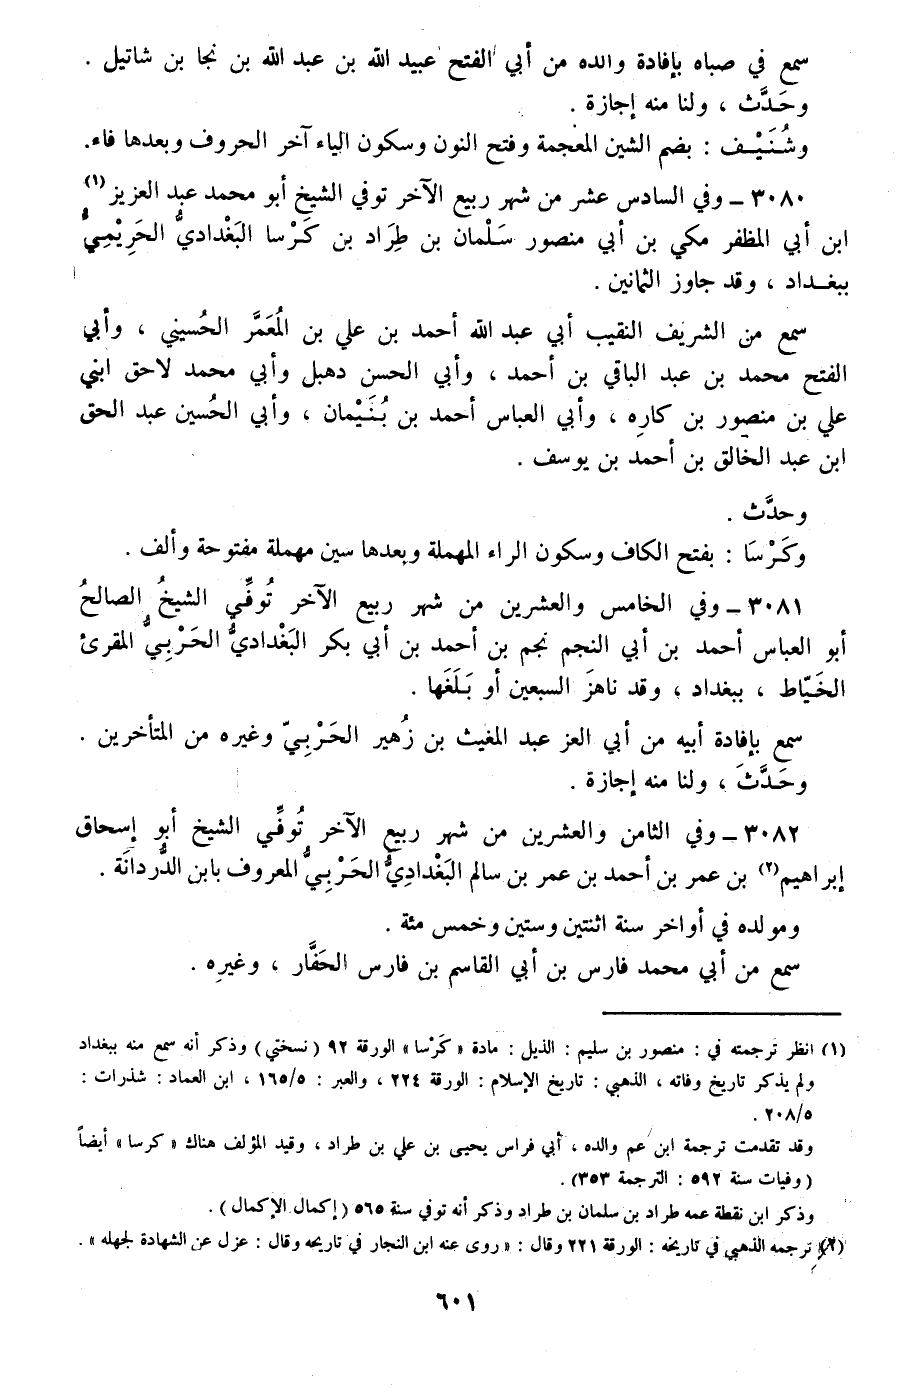 سمع في صباه بإفادة والده من أبي الفتح عبيد الله بن عبد الله بن نجا بن شاتيل .
وحَدَّث ، ولنا منه إجازة .
وشُنَيْف : بضم الشين المعجمة وفتح النون وسكون الياء آخر الحروف وبعدها فاء.
٣٠٨٠ ـ وفي السادس عشر من شهر ربيع الآخر توفي الشيخ أبو محمد عبد العزيز (١)
ابن أبي المظفر مكي بن أبي منصور سَلْمان بن طِرَاد بن كَرْسا البَغْداديُّ الحَرِيْمِيُّ
ببغداد ، وقد جاوز الثمانين .
سمع من الشريف النقيب أبي عبد الله أحمد بن علي بن المُعَمَّر الحُسيني ، وأبي
الفتح محمد بن عبد الباقي بن أحمد ، وأبي الحسن دهبل وأبي محمد لاحق ابني
علي بن منصور بن كارِه ، وأبي العباس أحمد بن بُنَيْمان ، وأبي الحُسين عبد الحق
ابن عبد الخالق بن أحمد بن يوسف .
وحدَّث .
وكَرْسَا : بفتح الكاف وسكون الراء المهملة وبعدها سين مهملة مفتوحة وألف .
٣٠٨١ ـ وفي الخامس والعشرين من شهر ربيع الآخر تُوفِّي الشيخُ الصالحُ
أبو العباس أحمد بن أبي النجم نجم بن أحمد بن أبي بكر البَغْداديُّ الحَرْبِيُّ المقرئ
الخَيّاط ، ببغداد ، وقد ناهزَ السبعين أو بَلَغَها .
سمع بإفادة أبيه من أبي العز عبد المغيث بن زُهير الحَرْبِيّ وغيره من المتأخرين .
وحَدَّثَ ، ولنا منه إجازة .
٣٠٨٢ ـ وفي الثامن والعشرين من شهر ربيع الآخر تُوفِّي الشيخ أبو إسحاق
إبراهيم (٢) بن عمر بن أحمد بن عمر بن سالم البَغْدادِيُّ الحَرْبِيُّ المعروف بابن الدُّردانَة .
ومولده في أواخر سنة اثنتين وستين وخمس مئة .
سمع من أبي محمد فارس بن أبي القاسم بن فارس الحَفَّار ، وغيرِه .
(١) انظر ترجمته في : منصور بن سليم : الذيل : مادة « كَرْسا » الورقة ٩٢ ( نسختي ) وذكر أنه سمع منه ببغداد
ولم يذكر تاريخ وفاته ، الذهبي : تاريخ الإسلام : الورقة ٢٢٤ ، والعبر : ١٦٥/٥ ، ابن العماد : شذرات :
٢٠٨/٥ .
وقد تقدمت ترجمة ابن عم والده ، أبي فراس يحيى بن علي بن طراد ، وقيد المؤلف هناك « كرسا » أيضاً
( وفيات سنة ٥٩٢ : الترجمة ٣٥٣) .
وذكر ابن نقطة عمه طراد بن سلمان بن طراد وذكر أنه توفي سنة ٥٦٥ ( إكمال الإكمال ) .
(٢) ترجمه الذهبي في تاريخه : الورقة ٢٢١ وقال : « روى عنه ابن النجار في تاريخه وقال : عزل عن الشهادة لجهله » .
٦٠١